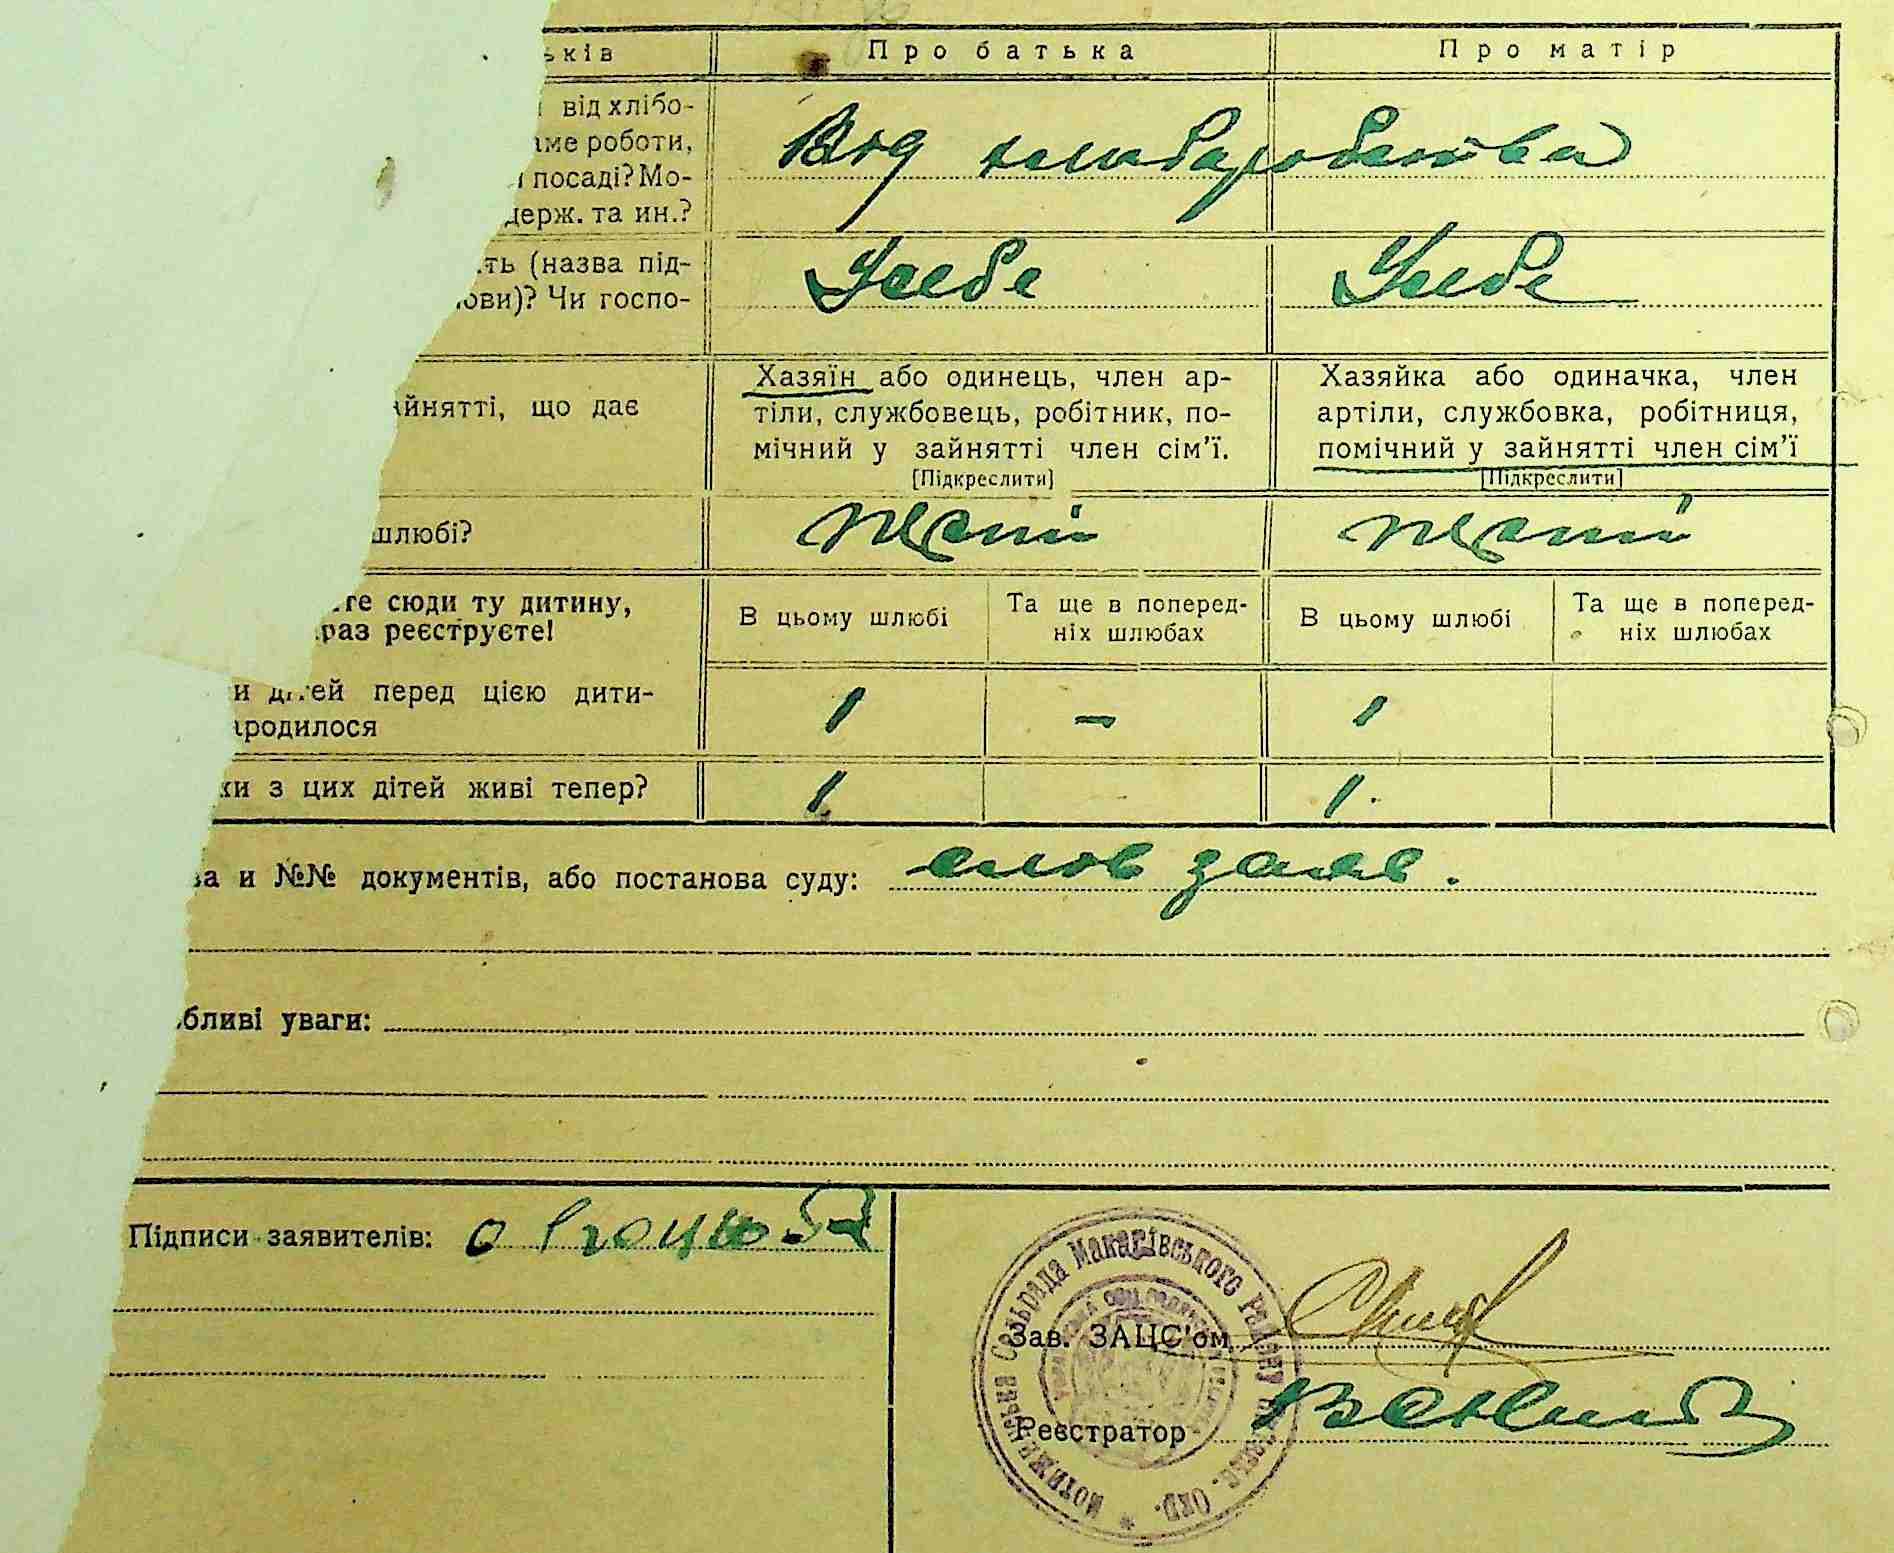 ьків Про батька Про матір
від хлібо-
аме роботи,
і посаді? Мо-
держ. та ин.?
Від хлибаробства
ть (назва під-
ови)? Чи госпо-
Усебе Усебе
айнятті, що дає
Хазяїн або одинець, член ар-
тіли, службовець, робітник, по-
мічний у зайнятті член сім'ї.
[Підкреслити]
Хазяйка або одиначка, член
артіли, службовка, робітниця,
помічний у зайнятті член сім'ї
[Підкреслити]
шлюбі?
те сюди ту дитину,
раз реєструєте!
В цьому шлюбі
Та ще в поперед-
ніх шлюбах
В цьому шлюбі
Та ще в поперед-
ніх шлюбах
и дітей перед цією дити-
ародилося
1 – 1
ки з цих дітей живі тепер?
1 1.
ва и №№ документів, або постанова суду: слов заяв.
бливі уваги:
Підписи заявителів:
Мотиженська Сельрада Макарівського Району Київське. Окр.
Зав. ЗАЦС'ом
Реєстратор